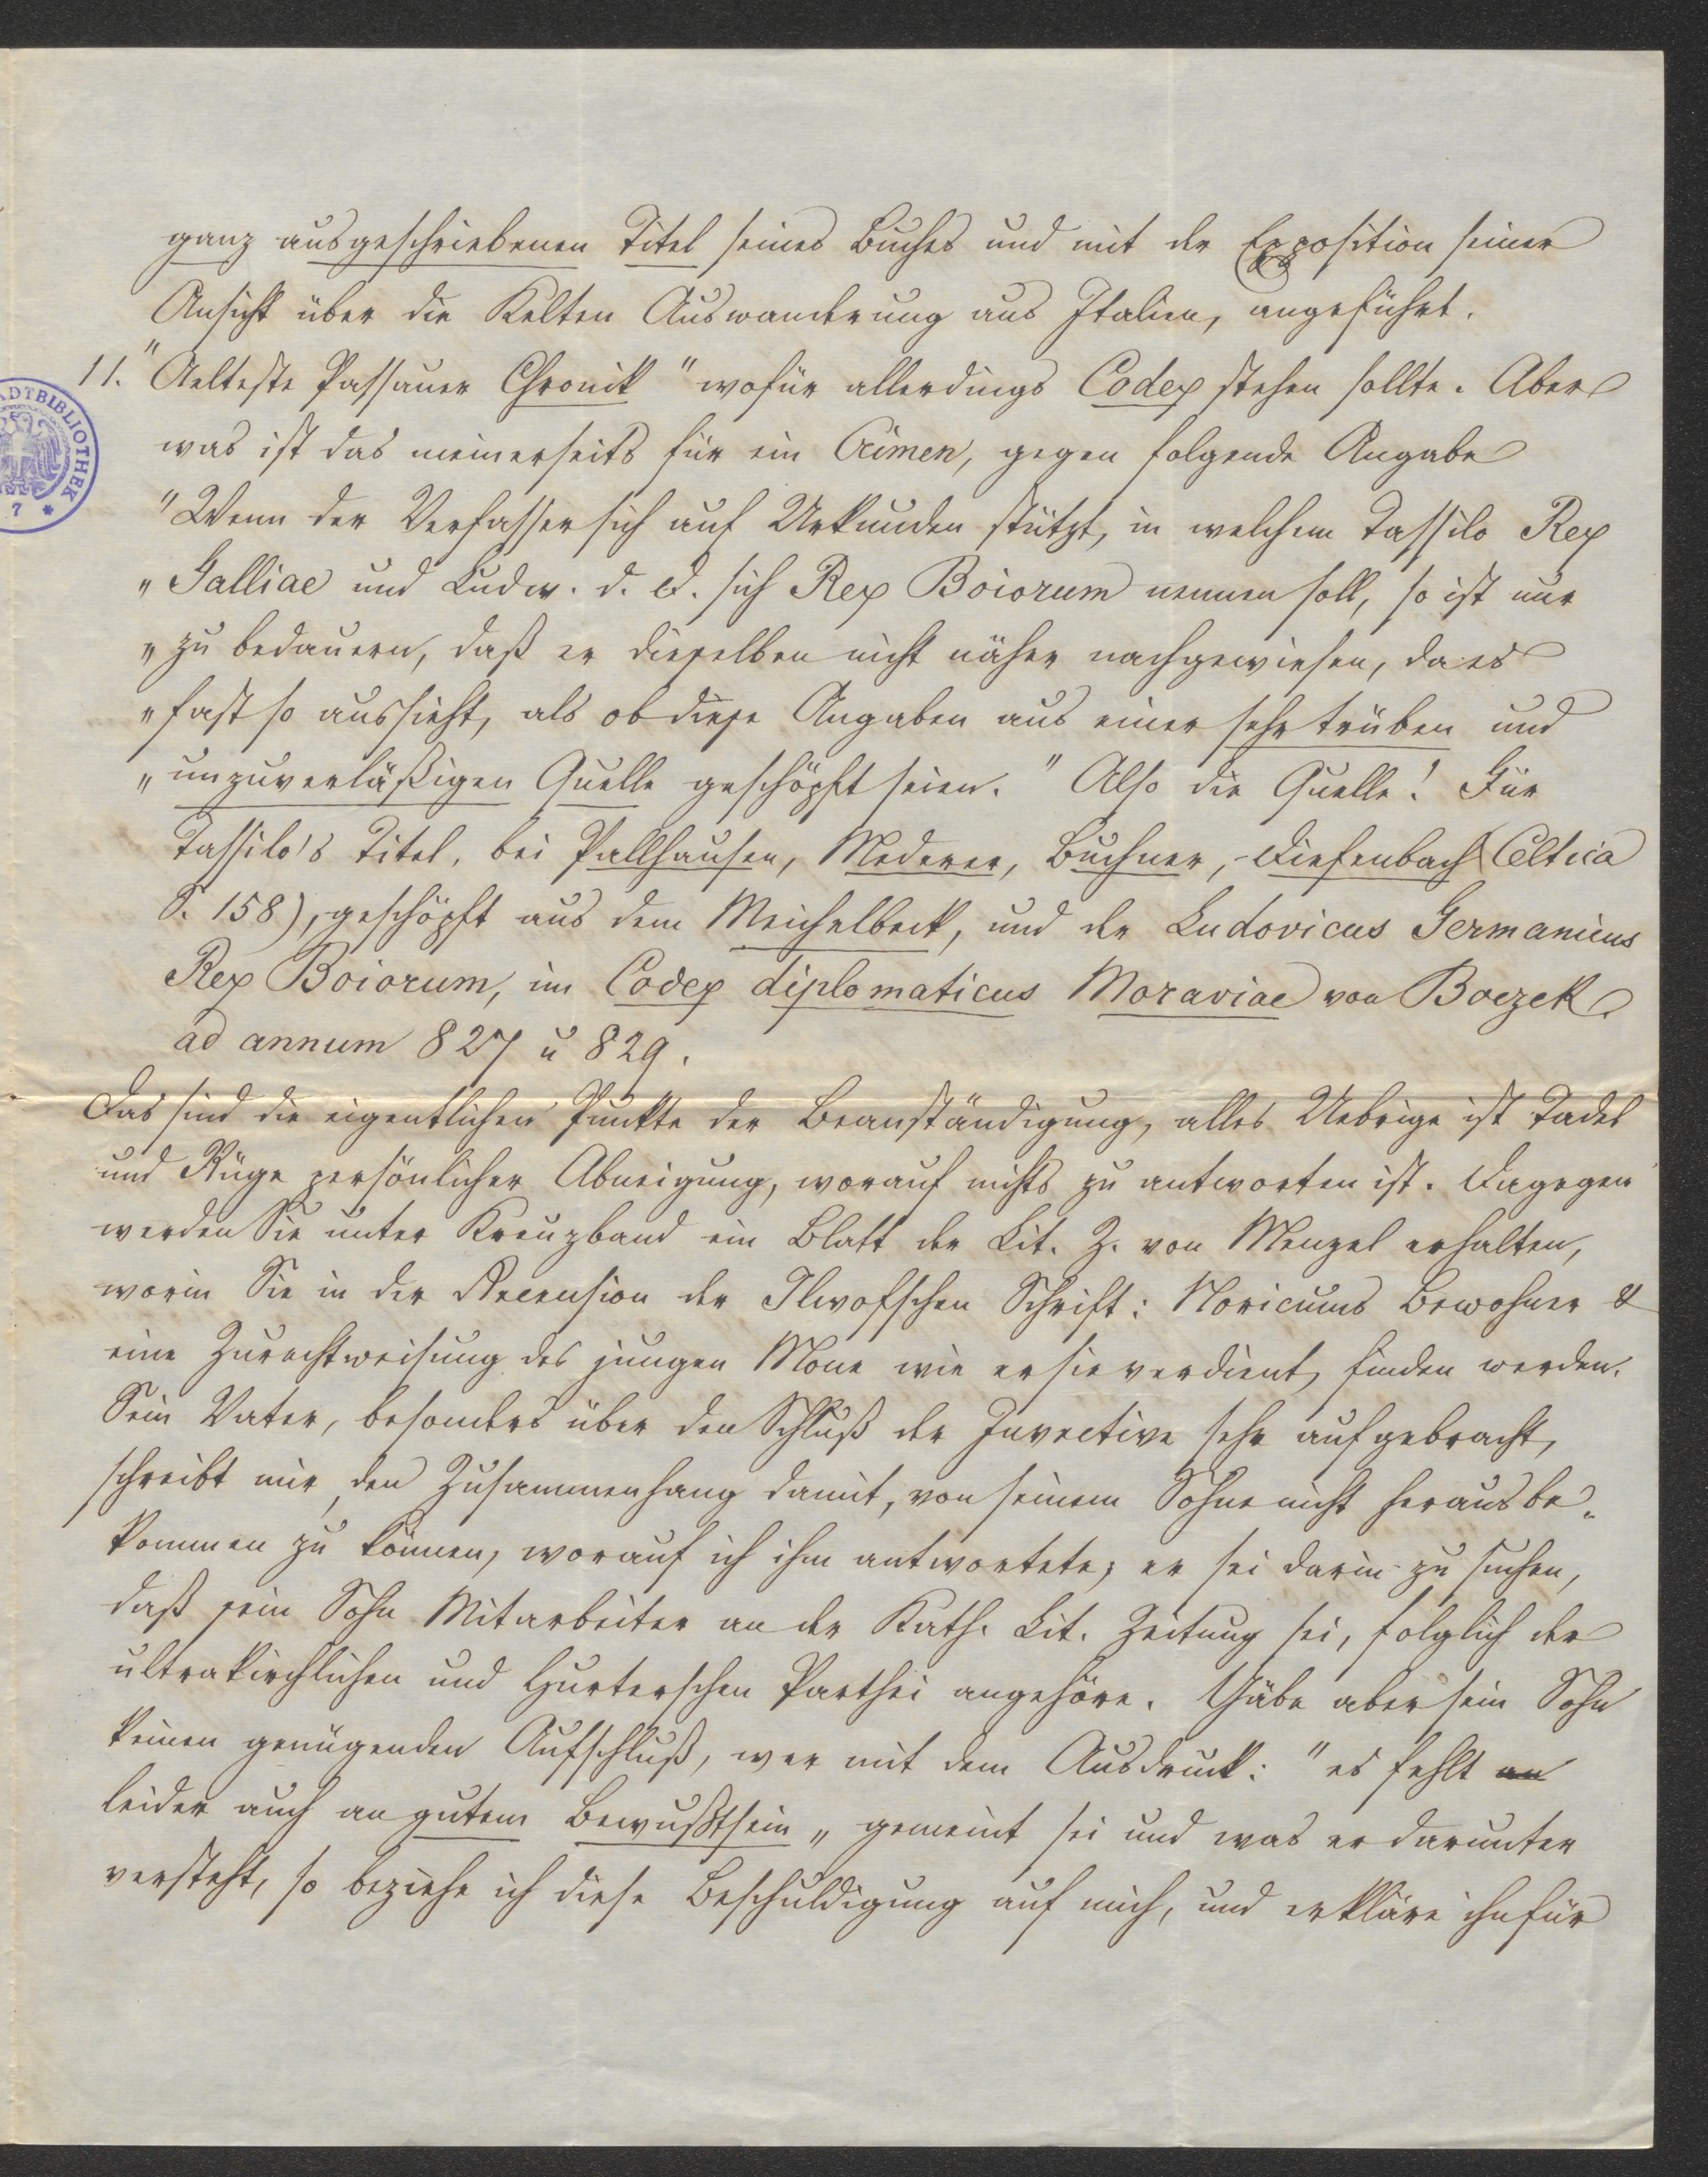 ganz ausgeschriebenen Titel seines Buches und mit der Exposition seiner
Ansicht über die Kelten Auswanderung aus Italien, angeführt.
11. "Aelteste Passauer Chronik" wofür allerdings Codex stehen sollte. Aber
was ist das meinerseits für ein Crimen, gegen folgende Angabe
"Wenn der Verfasser sich auf Urkunden stützt, in welchem Tassilo Rex
"Galliae und Ludw. d. D. sich Rex Boiorum nennen soll, so ist nur
"zu bedauern, daß er dieselben nicht näher nachgewiesen, da es
"fast so aussieht, als ob diese Angaben aus einer sehr trüben und
"unzuverläßigen Quelle geschöpft seien." Also die Quelle! Für
Tassilo's Titel, bei Pallhausen, Mederer, Buchner, Diefenbach (Celtica
S. 158), geschöpft aus dem Meichelbeck, und der Ludovicus Germanicus
Rex Boiorum, im Codex diplomaticus Moraviae von Boczek
ad annum 827 u 829.
Das sind die eigentlichen Punkte der Beanständigung, alles Uebrige ist Tadel
und Rüge persönlicher Abneigung, worauf nichts zu antworten ist. Dagegen
werden Sie unter Kreuzband ein Blatt der Lit. Z. von Menzel erhalten,
worin Sie in der Recension der Ilwofschen Schrift: Noricums Bewohner &
eine Zurechtweisung des jungen Mone wie er sie verdient, finden werden.
Sein Vater, besonders über den Schluß der Invective sehr aufgebracht,
schreibt mir, den Zusammenhang damit, von seinem Sohne nicht herausbe„
kommen zu können, worauf ich ihm antwortete; er sei darin zu suchen,
daß sein Sohn Mitarbeiter an der Kath. Lit. Zeitung sei, folglich der
ultrakirchlichen und Hurterschen Parthei angehöre. Gäbe aber sein Sohn
keinen genügenden Aufschluß, wer mit dem Ausdruck: "es fehlt an
leider auch an gutem Bewußtsein„ gemeint sei und was er darunter
versteht, so beziehe ich diese Beschuldigung auf mich, und erkläre ihn für
ADTBIBLIOTHEK
7 *